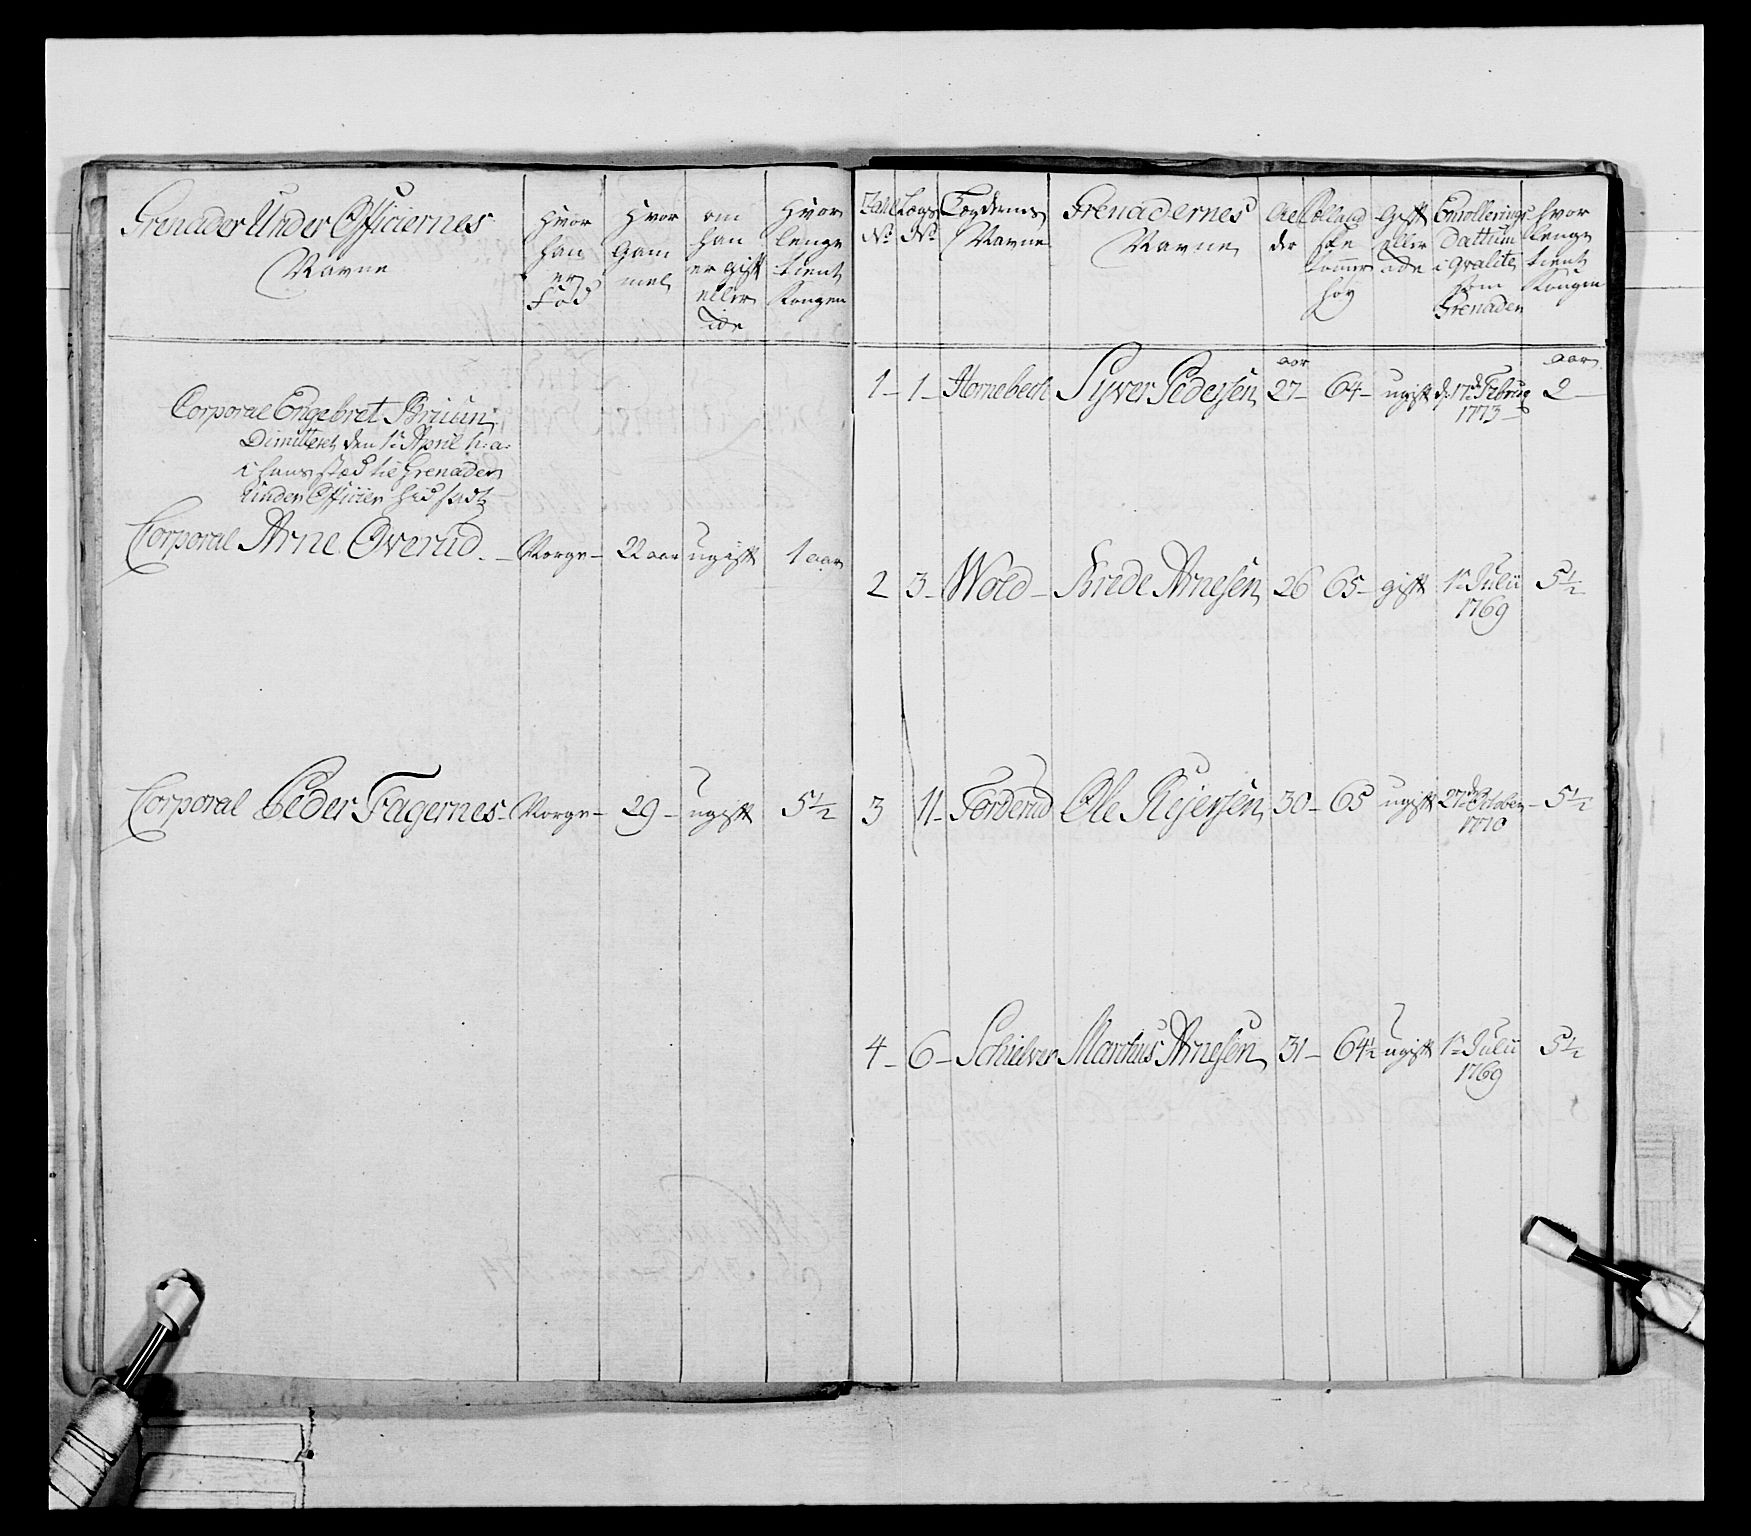 Grenader Under Officiernes
Navne
Hvor
han
er
Fød
Hvor
Gam
mel
om
han
er gift
eller
ide
Hvor
lenge
tient
Kongen
Corporal Engebret Bruun
Dimitteret den 1te April h: a:
i hans sted til Grenader
Under Officier hid sadt
Corporal Arne Overud Norge 22 aar ugift 1 aar
Corporal Peder Fagernes Norge 29 ugift 5½
No
Lægs
No
Lægdernes
Navne
Grenadernes
Navne
Al
der
Tommer
høy
Gift
eller
ide
Enrollerings
Dattum
i qvalite
som
Grenader
Hvor
lenge
tient
Kongen
aar
aar
1 1 Hornebech Syver Pedersen 27 64 ugift d 17de Februa
1773
2
2 3 Wold Arnesen 26 65 gift 1te Julii 5½
1769
3 11 Forderud Ole Rejersen 30 65 ugift 27de October 5½
1770
4 6 Schielver Marthius Arnesen 31 64½ ugift 1te Julii 5½
1769